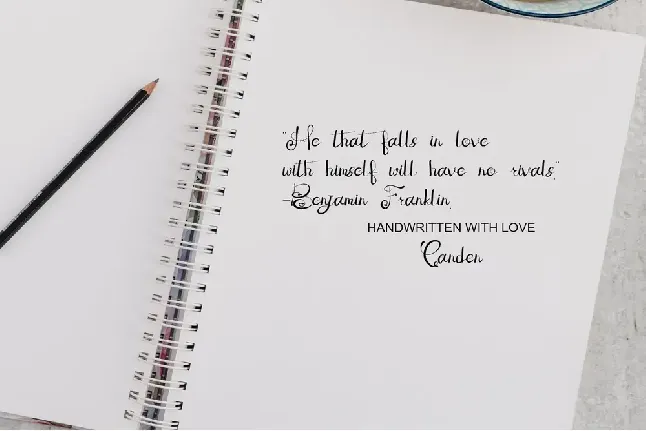 "He that falls in love
with himself will have no rivals."
-Benjamin Franklin.
HANDWRITTEN WITH LOVE
Canden